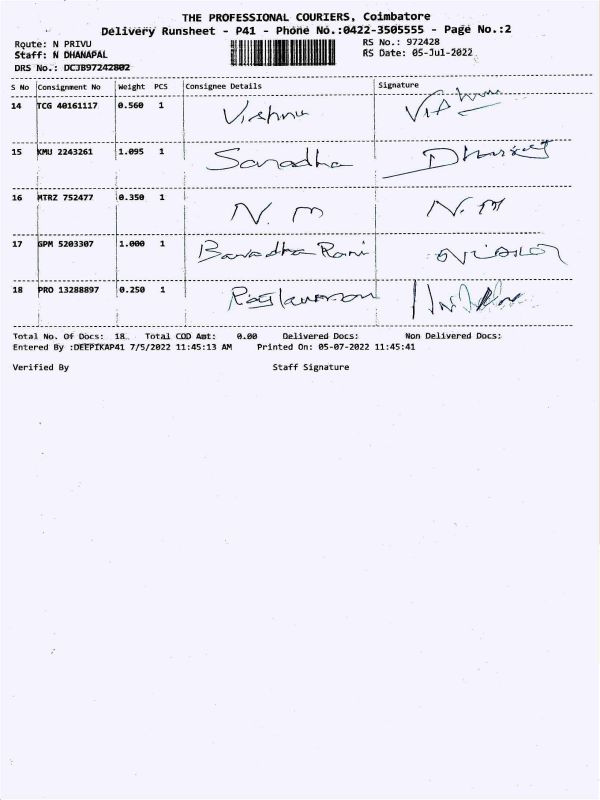 THE PROFESSIONAL COURIERS, Coimbatore
Delivery Runsheet - P41 - Phone No.:0422-3505555 - Page No.:2
Route: N PRIVU RS No.: 972428
Staff: N DHANAPAL RS Date: 05-Jul-2022
DRS No.: DCJB97242802
S No Consignment No Weight PCS Consignee Details Signature
14 TCG 40161117 0.560 1 Vishnu
15 KMU 2243261 1.095 1 Saradha
16 MTRZ 752477 0.350 1 N. M N. M
17 GPM 5203307 1.000 1 Rani
18 PRO 13288897 0.250 1
Total No. Of Docs: 18 Total COD Amt: 0.00 Delivered Docs: Non Delivered Docs:
Entered By :DEEPIKAP41 7/5/2022 11:45:13 AM Printed On: 05-07-2022 11:45:41
Verified By Staff Signature